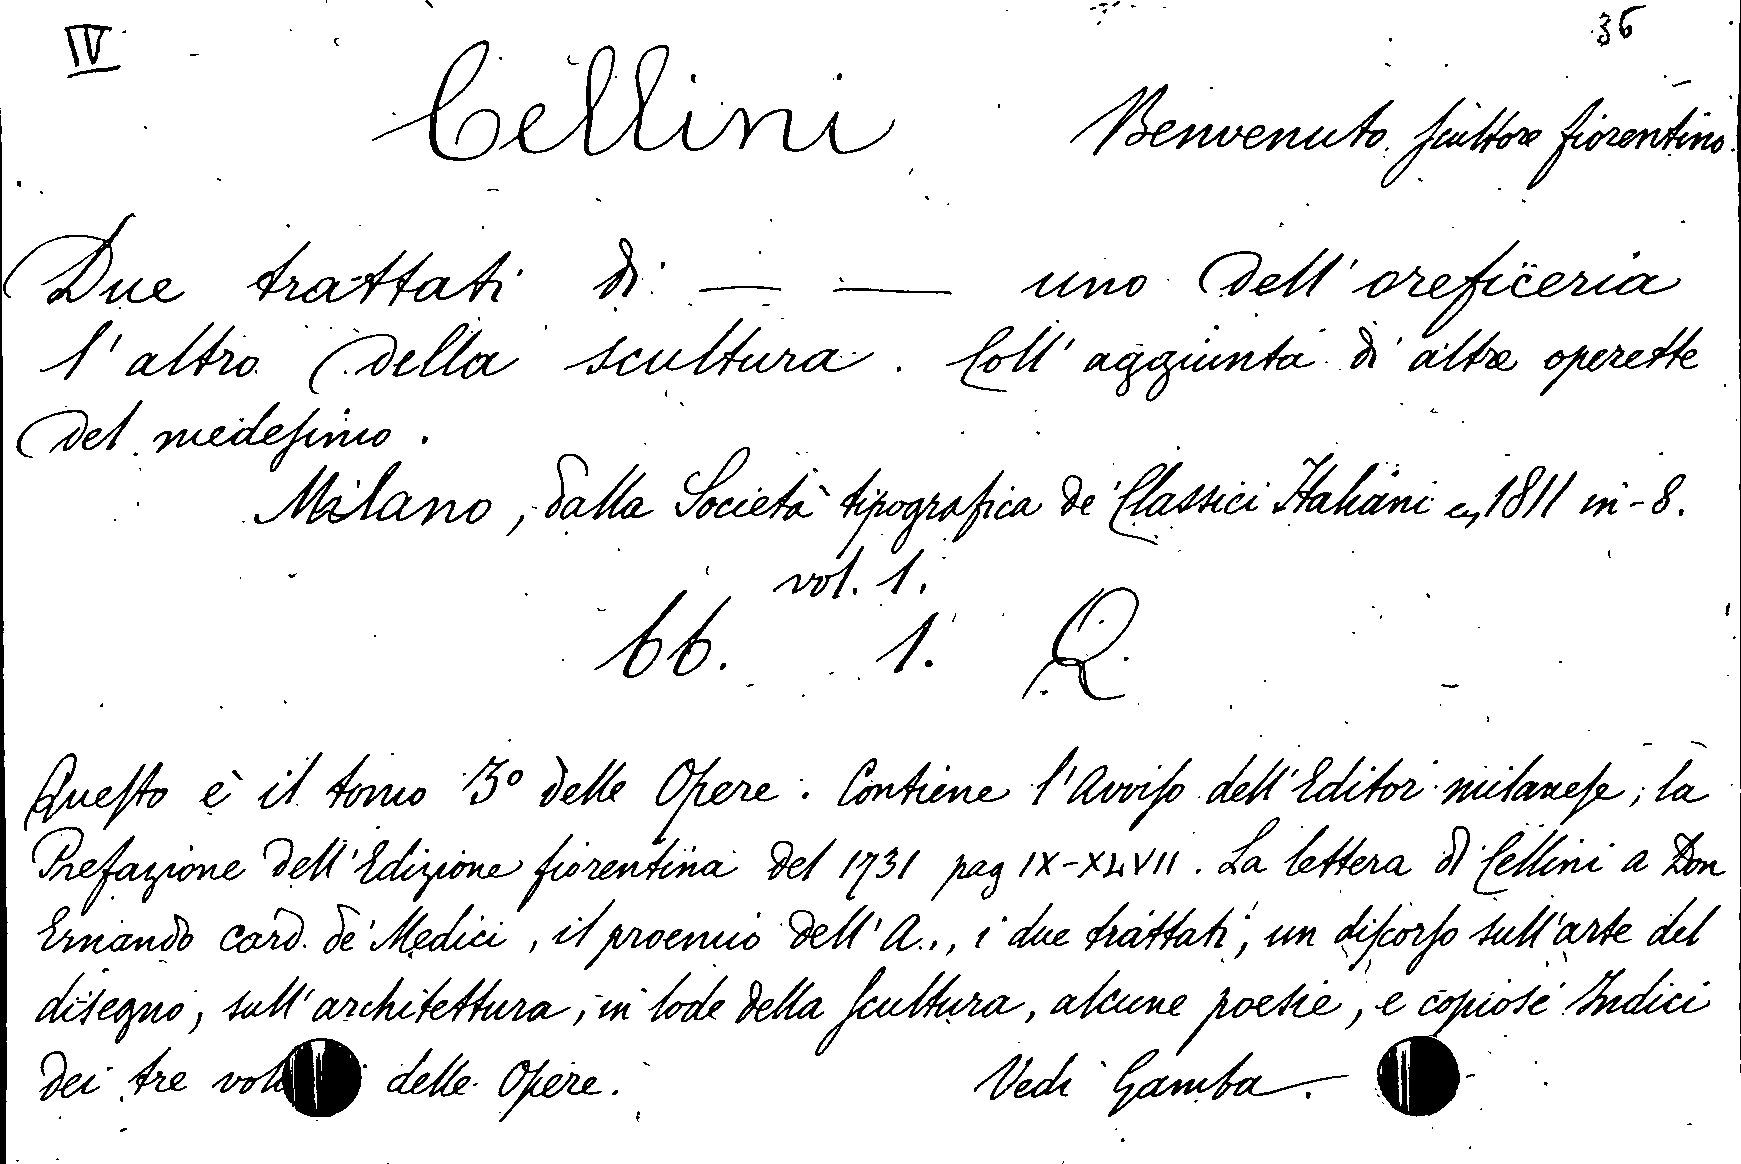 IV
36
Cellini Benvenuto scultore fiorentino.
Due trattati di — — uno dell'oreficeria
l'altro della scultura. Coll'aggiunta di altre operette
del medesimo.
Milano, dalla Società tipografica de' Classici Italiani 1811 in-8.
vol. 1.
66. 1. Q.
Questo è il tomo 3º delle Opere. Contiene l'Avviso dell'Editor milanese, la
Prefazione dell'Edizione fiorentina del 1731 pag IX-XLVII. La lettera di Cellini a Don
Ernando card. de' Medici, il proemio dell'A., i due trattati, un discorso sull'arte del
disegno, sull'architettura, in lode della scultura, alcune poesie, e copiose Indici
dei tre delle Opere. Vedi Gamba.